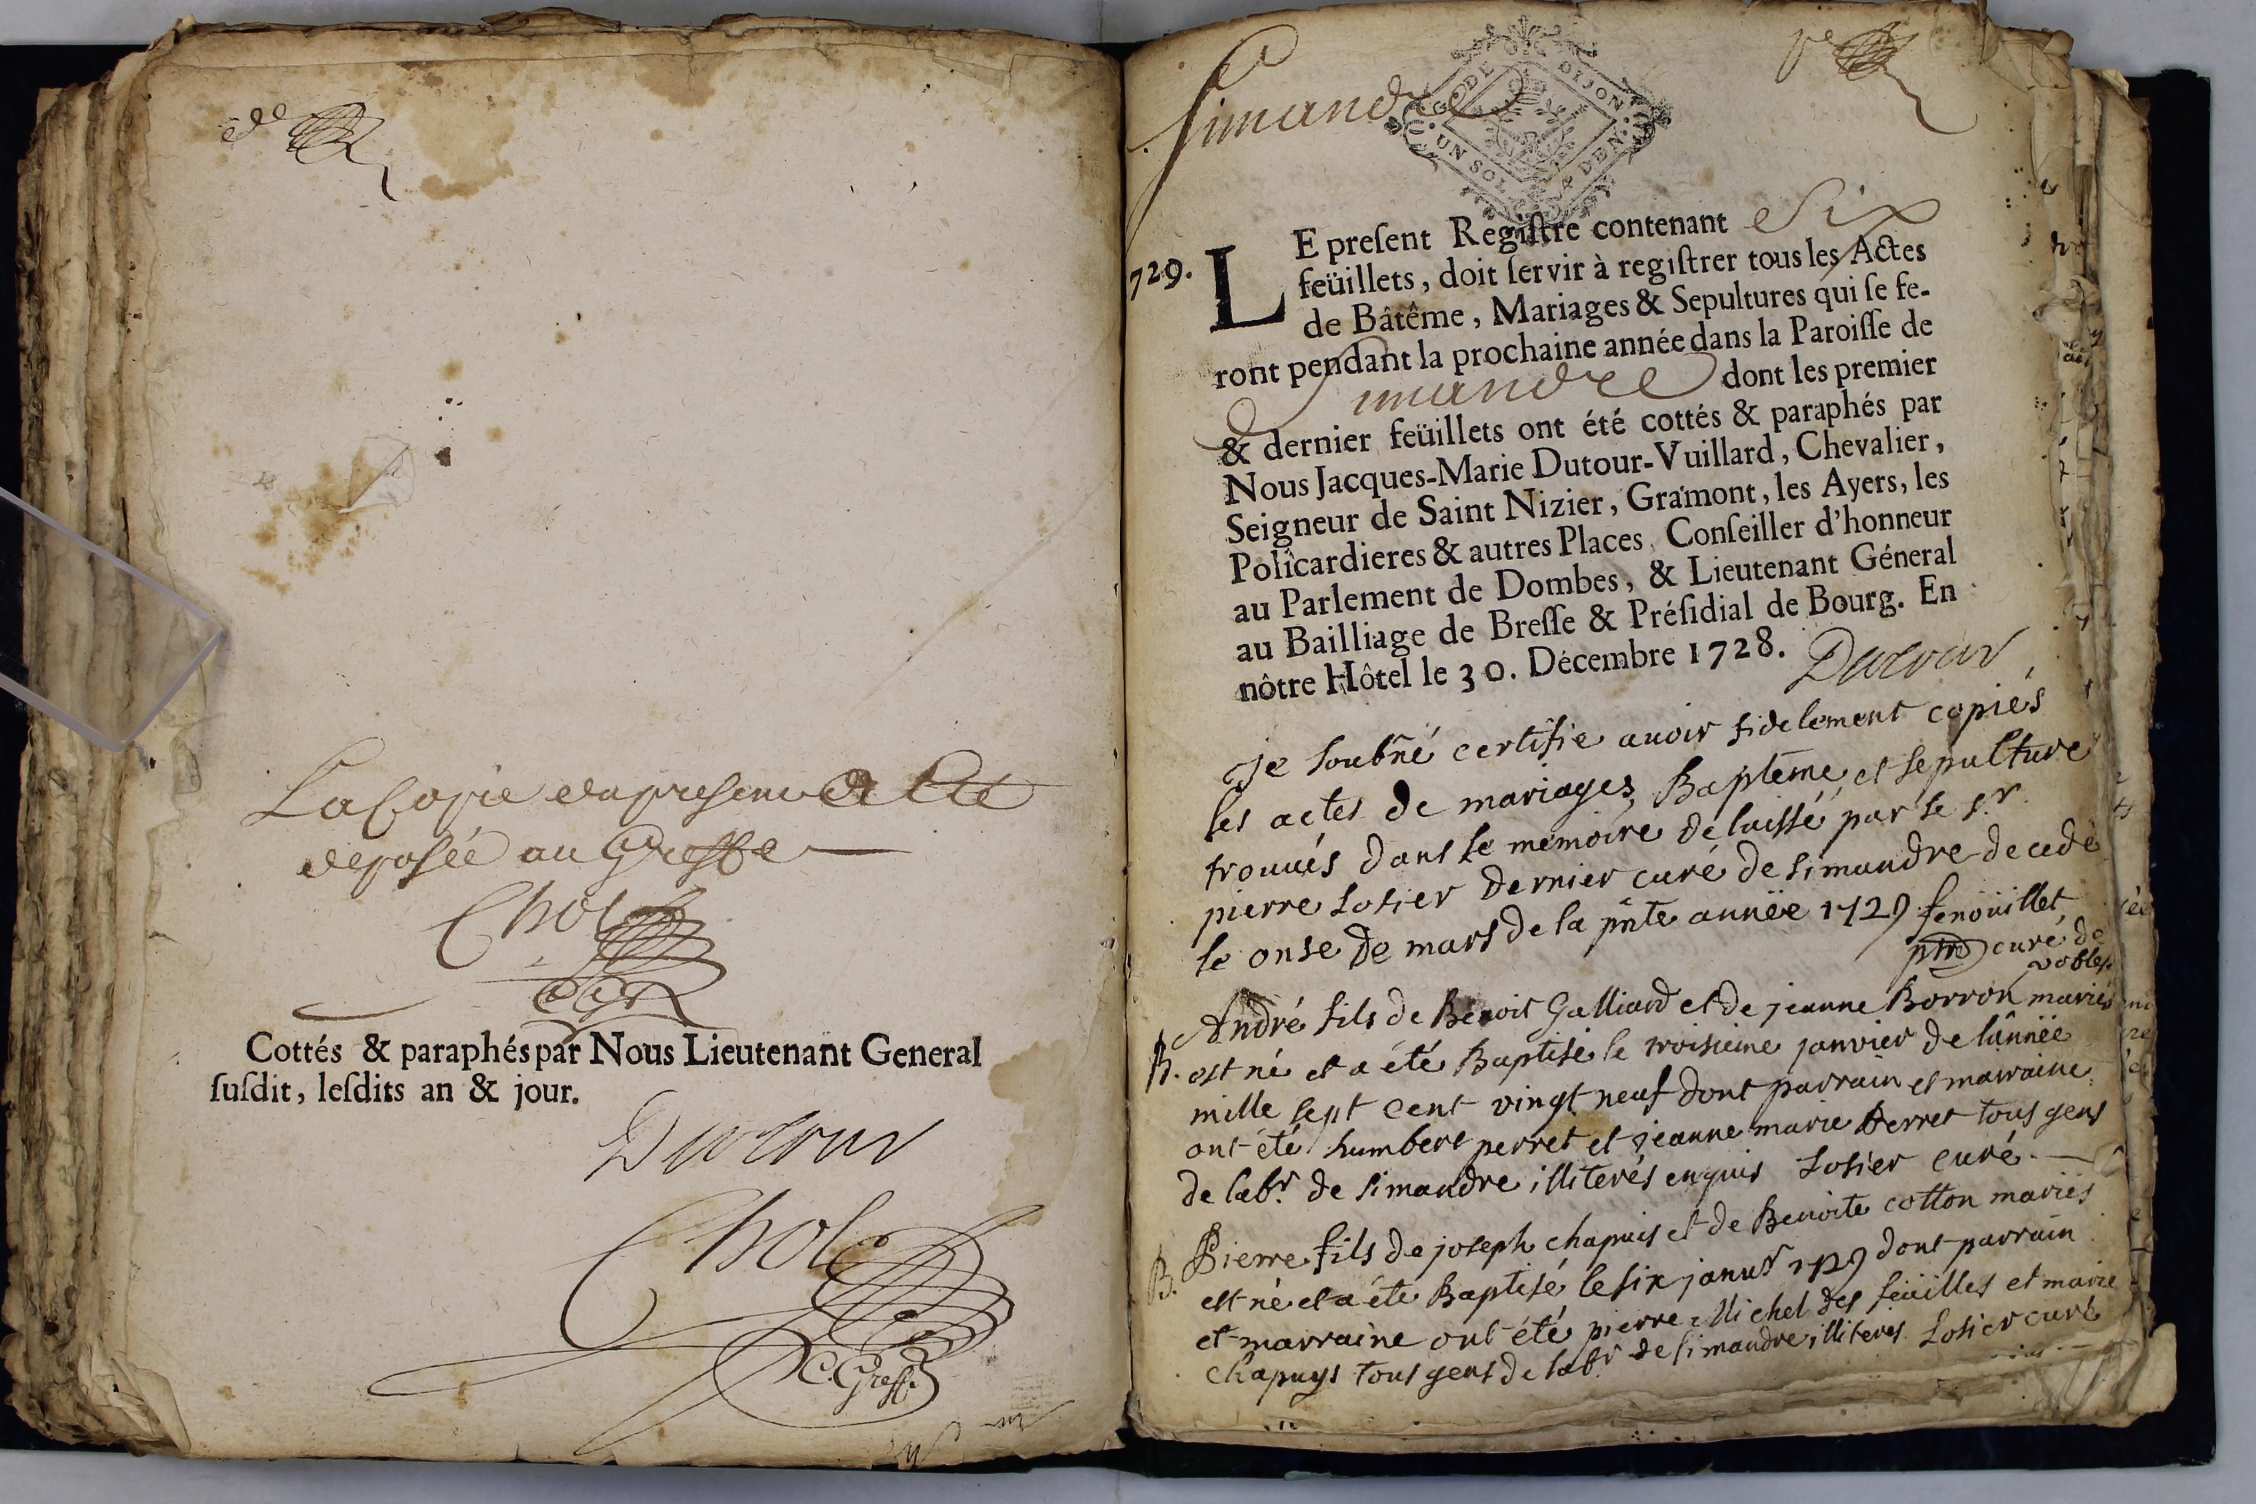 La Copie du present a Eté
deposée au Greffe
Chol
Cottés & paraphés par Nous Lieutenant General
ſuſdit, leſdits an & jour.
Dutour
Chol
C. Greff.
Simandre
GDE DIJON
UN SOL 4 DEN.
1729.
LE preſent Regiſtre contenant Six
feüillets, doit ſervir à regiſtrer tous les Actes
de Bâtême, Mariages & Sepultures qui ſe fe-
ront pendant la prochaine année dans la Paroiſſe de
Simandre dont les premier
& dernier feüillets ont été cottés & paraphés par
Nous Jacques-Marie Dutour-Vuillard, Chevalier,
Seigneur de Saint Nizier, Gramont, les Ayers, les
Policardieres & autres Places, Conſeiller d'honneur
au Parlement de Dombes, & Lieutenant Géneral
au Bailliage de Breſſe & Préſidial de Bourg. En
nôtre Hôtel le 30. Décembre 1728.
Dutour
je soubné certifie avoir fidelement copiés
les actes de mariages, Bapteme, et sepulture
trouués dans le memoire delaissé par le sr.
pierre Losier dernier curé de simandre decedé
le onse de mars de la pnte année 1729 fenöuillet
ptre curé de
vobles
B. André fils de Benoit Galliard et de jeanne Borron mariés
est né et a été Baptisé le troisieme janvier de l'année
mille sept cent vingt neuf dont parrain et marraine
ont été humbert perret et jeanne marie perret tous gens
de labr. de simandre illiterés enquis Losier curé
B. Pierre fils de joseph chapuis et de Benoite cotton mariés
est né et a été Baptisé le six janur 1729 dont parrain
et marraine ont été pierre Michel des feüilles et marie
chapuys tous gens de labr. de simandre illiteres Losier curé